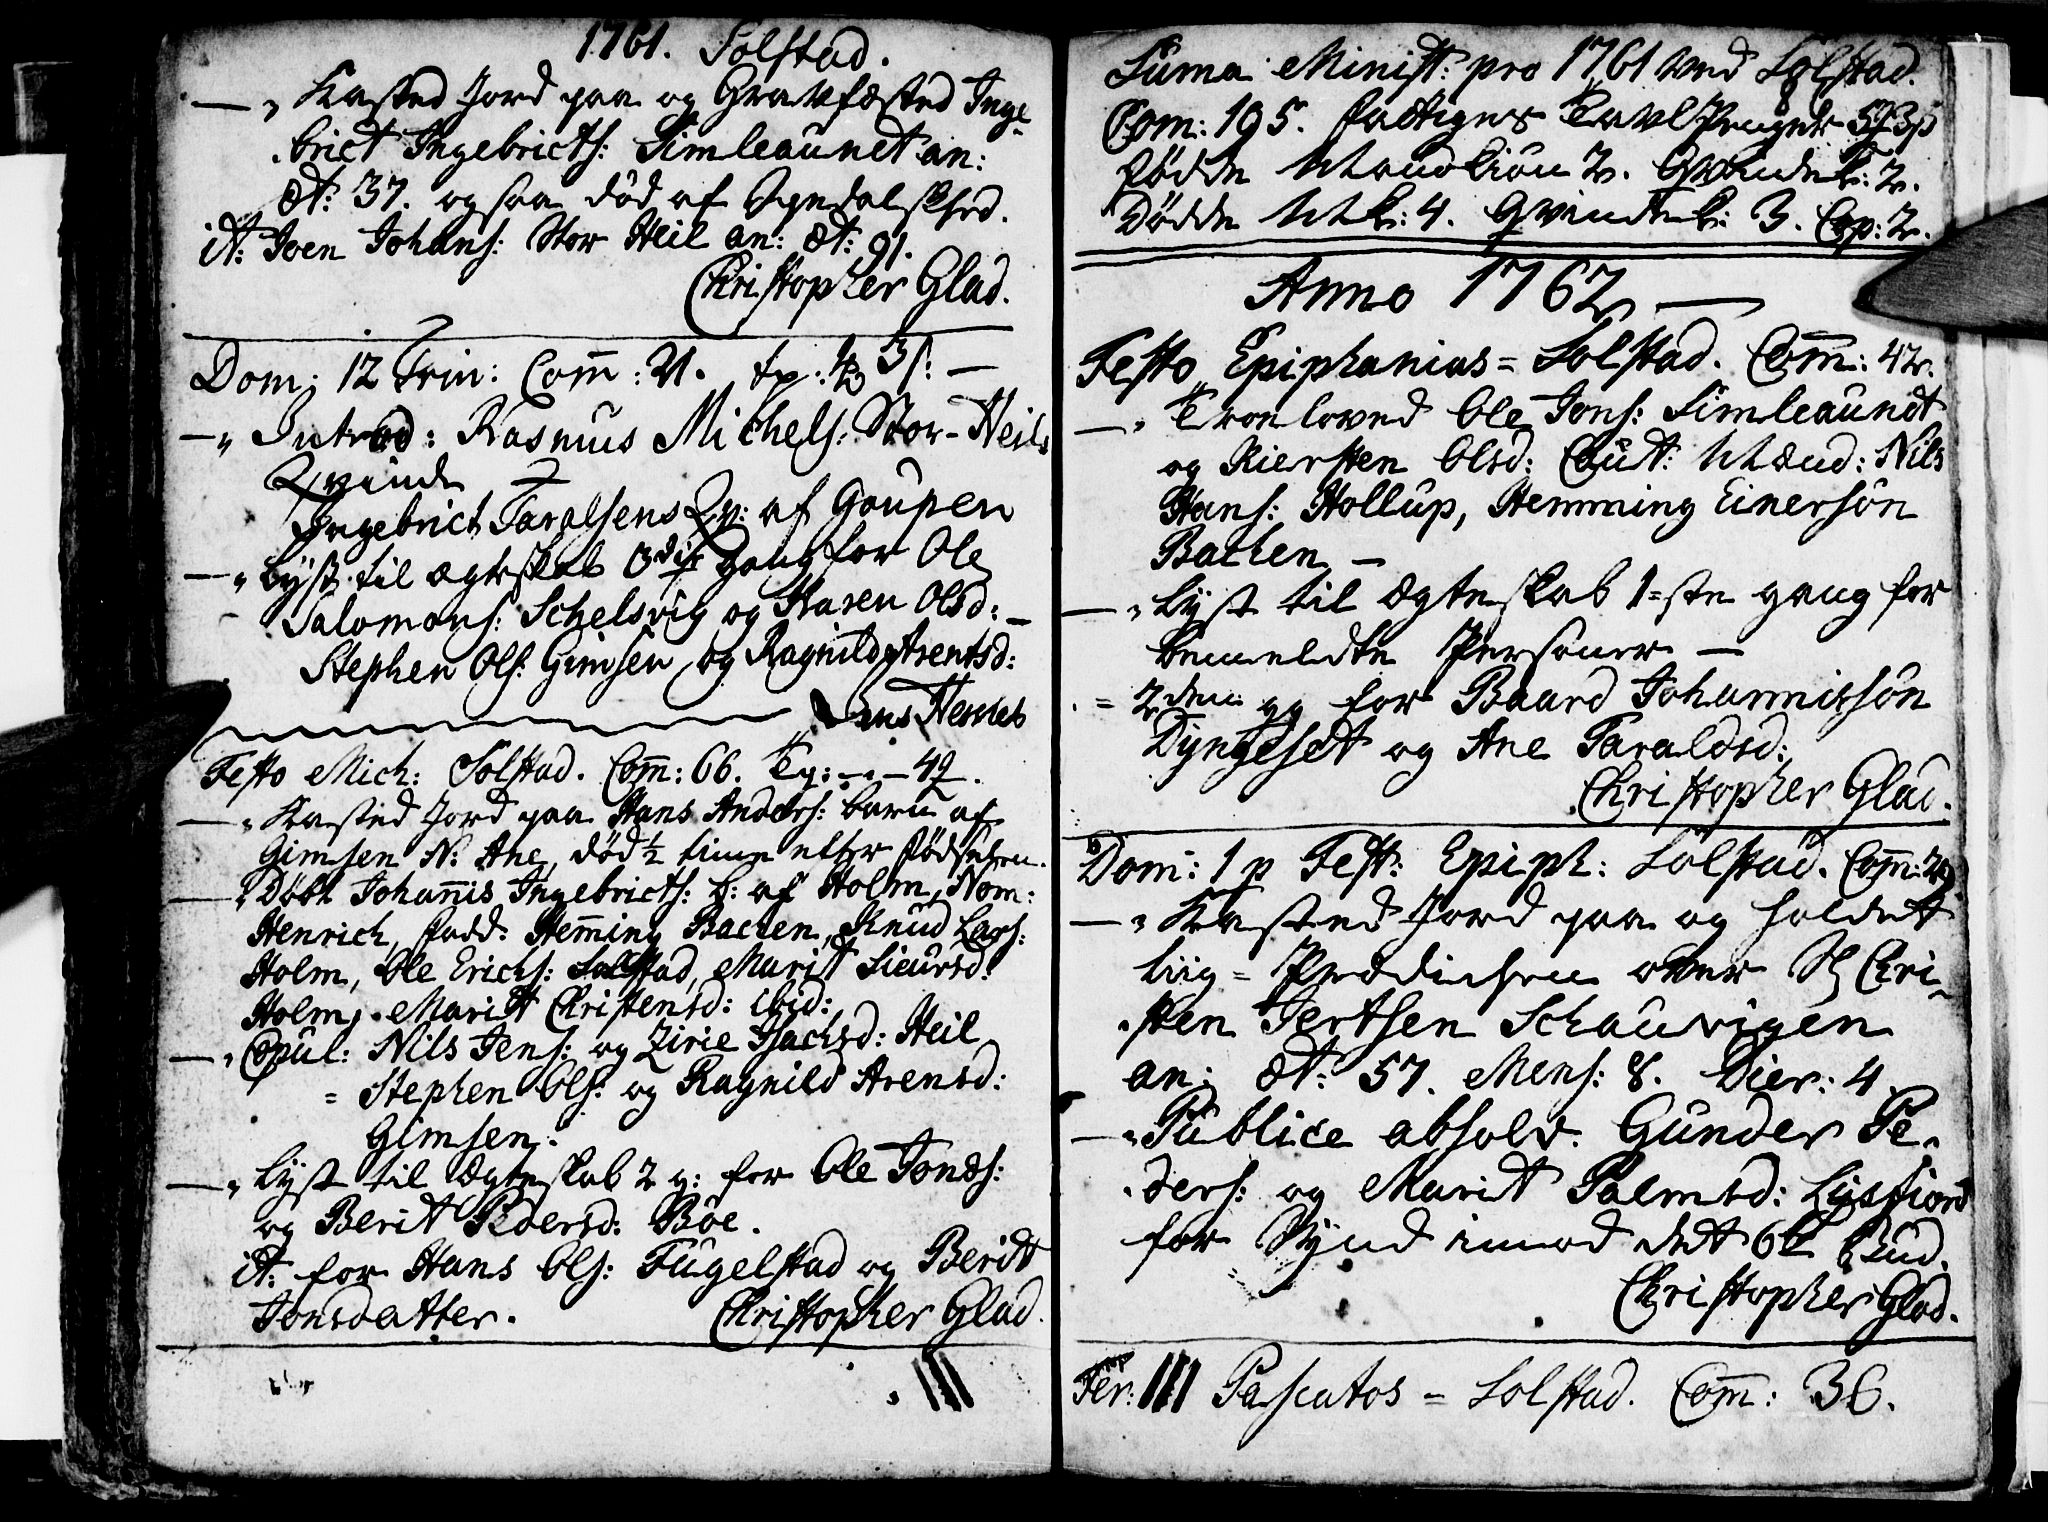 1761. Solstad.
— „ Kasted Jord paa og Gravfæsted Inge-
brict Ingebricts: Simleaunet an:
æt: 37. og saa død af
it: Joen Johans: Stor Heil an: æt: 91.
Christopher Glad.
Dom: 12 Trin: Com̅: 21. tp: 3 ſ: —
— „ Introd: Rasmus Michels: Stor-Heils
Qvinde
Ingebrict Taralsens Qv: af Gaupen
— „ Lyst til ægteskab 3die gang for Ole
Salomons: Schelsvig og Karen Olsd: —
Stephen Ols: Gimsen og Ragnild Arentsd:
Festo Mich: Solstad. Com̅: 66. Tp: — . — 42.
— „ Kasted Jord paa Hans Anders: barn af
Gimsen N: Ane, død ½ time efter fødselen.
— „ Døbt Johan̅is Ingebricts: b: af Holm, Nom:
Henrich, fadd: Hem̅ing Bachen, Knud Lars:
Holm, Ole Erichs: Solstad, Marit Sieursd:
Holm, Marit Christensd: ibid:
— „ Copul: Nils Jens: og Zirie Isachsd: Heil
= Stephen Ols: og Ragnild Arensd:
Gimsen.
— „ Lyst til ægteskab 2 g: for Ole Jons:
og Berit Pedersd: Böe.
it: for Hans Ols: Fugelstad og Berit
Jonsdatter. Christopher Glad.
Suma Minist: pro 1761 ved Solstad.
Com: 195. fattiges Tavl Penger
fødde Mandkiøn 2. Qvindek: 2.
Dødde Mk: 4. Qvindek: 3. Cop: 2.
Anno 1762 —
Festo Epiphanias = Solstad. Com̅: 42.
— „ Trolowed Ole Jons: Simleaunet
og Kiersten Olsd: Caut: Mænd: Nils
Hans: Hollup, Hemming Einersøn
Bachen —
— „ Lyst til ægteskab 1=ste gang for
bemeldte Personer —
= 2den gg for Baard Johannissøn
Dyngeset og Ane Taraldsd:
Christopher Glad.
Dom: 1 p Fest: Epiph: Solstad. Com̅: 29
— „ Kasted Jord paa og holdet
Liig = Prædichen over Chri-
sten Jertsen Schauvigen
an: æt: 57. Mens: 8. Dier: 4.
— „ Publice absolv. Gunder Pe-
ders: og Marit Palmsd: Lysfiord
for Synd imod det 6te Bud.
Christopher Glad.
Fer: III Pascatos = Solstad. Com̅: 36.